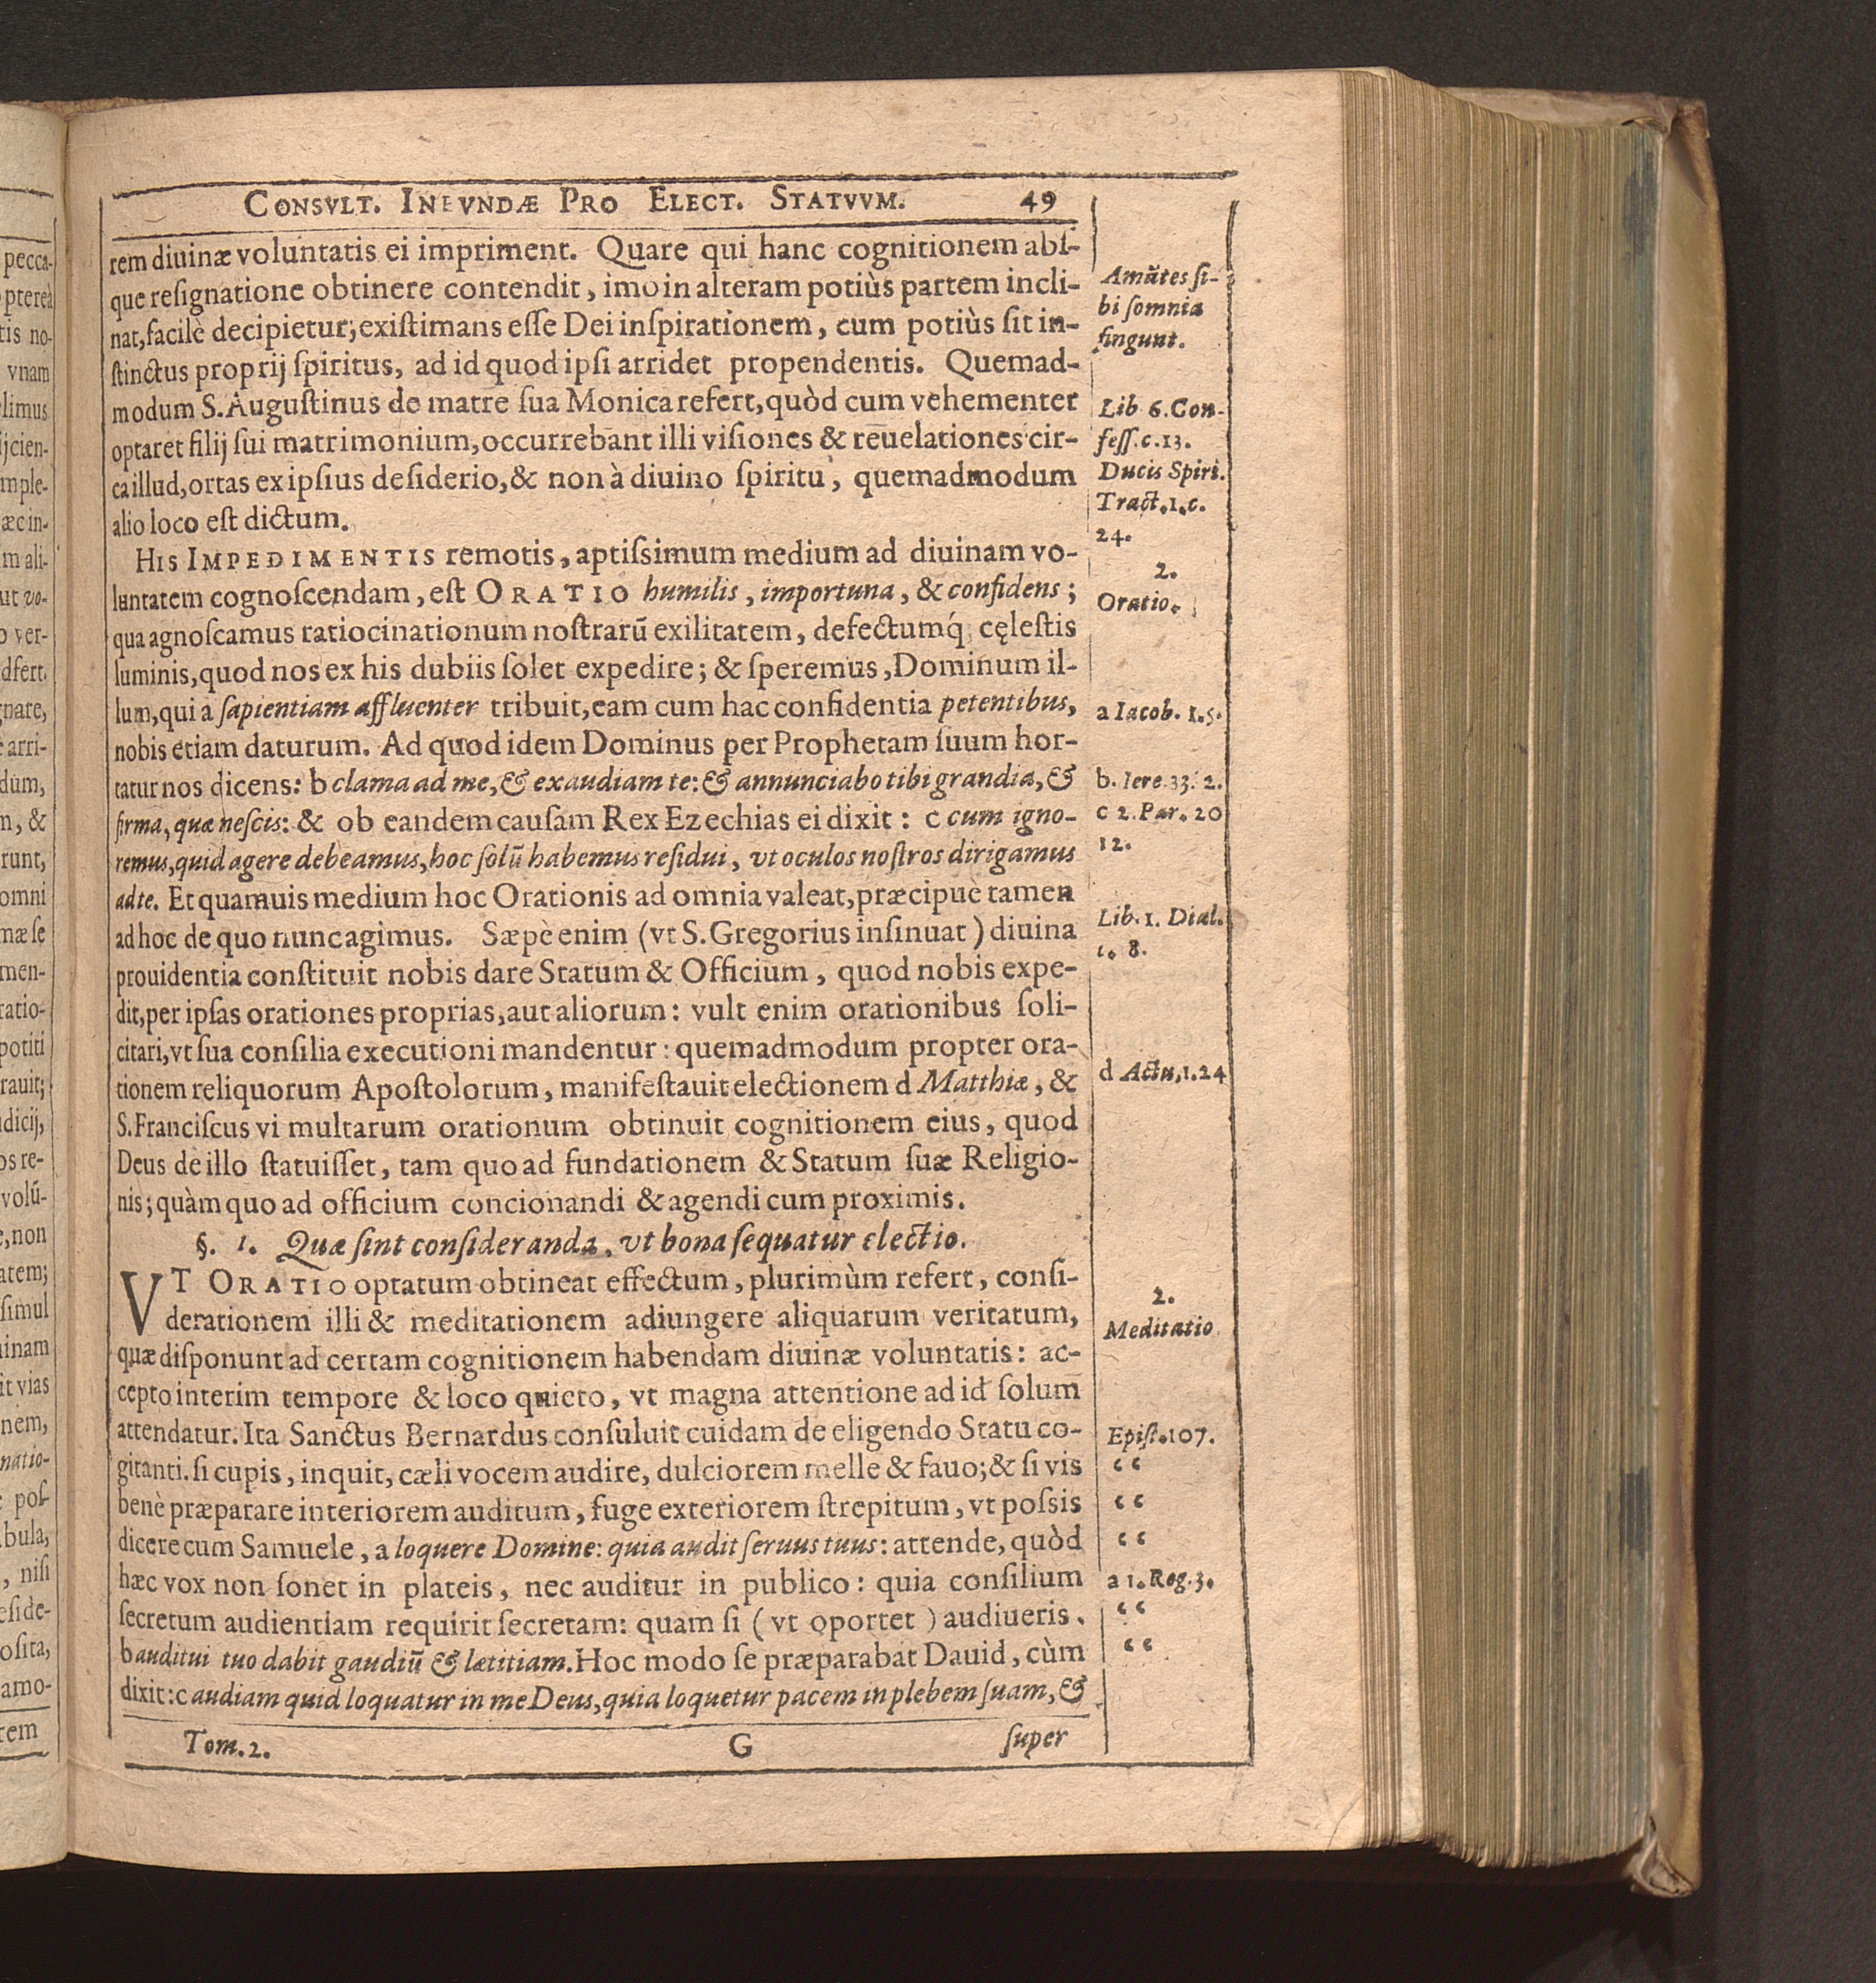 CONSVLT. INEVNDÆ PRO ELECT. STATVVM. 49
rem diuinæ voluntatis ei impriment. Quare qui hanc cognitionem abſ-
que reſignatione obtinere contendit, imo in alteram potiùs partem incli-
nat, facilè decipietur; exiſtimans eſſe Dei inſpirationem, cum potiùs ſit in-
ſtinctus proprij ſpiritus, ad id quod ipſi arridet propendentis. Quemad-
modum S. Auguſtinus de matre ſua Monica refert, quòd cum vehementer
optaret filij ſui matrimonium, occurrebant illi viſiones & reuelationes cir-
ca illud, ortas ex ipſius deſiderio, & non à diuino ſpiritu, quemadmodum
alio loco eſt dictum.
HIS IMPEDIMENTIS remotis, aptiſsimum medium ad diuinam vo-
luntatem cognoſcendam, eſt ORATIO humilis, importuna, & confidens;
qua agnoſcamus ratiocinationum noſtrarū exilitatem, defectumq́; cęleſtis
luminis, quod nos ex his dubiis ſolet expedire; & ſperemus, Dominum il-
lum, qui a ſapientiam affluenter tribuit, eam cum hac confidentia petentibus,
nobis etiam daturum. Ad quod idem Dominus per Prophetam ſuum hor-
tatur nos dicens: b clama ad me, & exaudiam te: & annunciabo tibi grandia, &
firma, quæ neſcis: & ob eandem cauſam Rex Ezechias ei dixit: c cum igno-
remus, quid agere debeamus, hoc ſolū habemus reſidui, vt oculos noſtros dirigamus
ad te. Et quamuis medium hoc Orationis ad omnia valeat, præcipuè tamen
ad hoc de quo nunc agimus. Sæpè enim (vt S. Gregorius inſinuat) diuina
prouidentia conſtituit nobis dare Statum & Officium, quod nobis expe-
dit, per ipſas orationes proprias, aut aliorum: vult enim orationibus ſoli-
citari, vt ſua conſilia executioni mandentur: quemadmodum propter ora-
tionem reliquorum Apoſtolorum, manifeſtauit electionem d Matthiæ, &
S. Franciſcus vi multarum orationum obtinuit cognitionem eius, quod
Deus de illo ſtatuiſſet, tam quo ad fundationem & Statum ſuæ Religio-
nis; quàm quo ad officium concionandi & agendi cum proximis.
§. 1. Quæ ſint conſideranda, vt bona ſequatur electio.
VT ORATIO optatum obtineat effectum, plurimùm refert, conſi-
derationem illi & meditationem adiungere aliquarum veritatum,
quæ diſponunt ad certam cognitionem habendam diuinæ voluntatis: ac-
cepto interim tempore & loco quieto, vt magna attentione ad id ſolum
attendatur. Ita Sanctus Bernardus conſuluit cuidam de eligendo Statu co-
gitanti. ſi cupis, inquit, cæli vocem audire, dulciorem melle & fauo; & ſi vis
benè præparare interiorem auditum, fuge exteriorem ſtrepitum, vt poſsis
dicere cum Samuele, a loquere Domine: quia audit ſeruus tuus: attende, quòd
hæc vox non ſonet in plateis, nec auditur in publico: quia conſilium
ſecretum audientiam requirit ſecretam: quam ſi (vt oportet) audiueris.
b auditui tuo dabit gaudiū & lætitiam. Hoc modo ſe præparabat Dauid, cùm
dixit: c audiam quid loquatur in me Deus, quia loquetur pacem in plebem ſuam, &
Tom. 2. G ſuper
Amātes ſi-
bi ſomnia
fingunt.
Lib 6. Con-
feſſ. c. 13.
Ducis Spiri.
Tract. 1. c.
24.
2.
Oratio.
a Iacob. 1. 5.
b. Iere. 33. 2.
c 2. Par. 20
12.
Lib. 1. Dial.
c. 8.
d Actu, 1. 24
2.
Meditatio
Epiſt. 107.
“
“
“
a 1. Reg. 3.
“
“
pecca-
ptereà
tis no-
vnam
limus
ijcien-
mple-
æc in-
m ali-
ut vo-
o ver-
dfert.
gnare,
è arri-
dum,
n, &
runt,
omni
mæ ſe
men-
ratio-
potiti
rauit;
dicij,
os re-
volū-
e, non
atem;
ſimul
uinam
it vias
nem,
natio-
poſ-
bula,
, niſi
eſide-
oſita,
amo-
rem